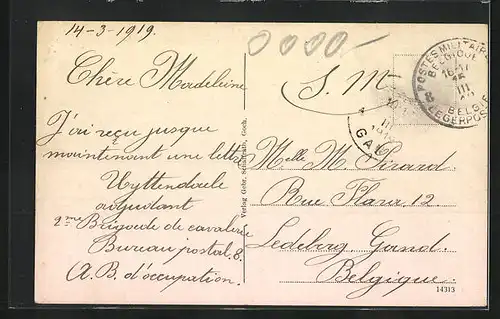 14-3-1919.
Chère Madeleine
J'ai reçu jusque
maintenant une lettre
Uyttendaele
adjudant
2me Brigade de cavalerie
Bureau postal 8.
(A.B. d'occupation.
Verlag Gebr. Schaffrath, Goch.
S. M.
POSTES MILITAIRES
BELGIQUE
15
III
BELGIE
LEGERPOST
8
III
GA
Melle M. Pirard
Rue Fleur. 12
Ledeberg Gand.
Belgique.
14313